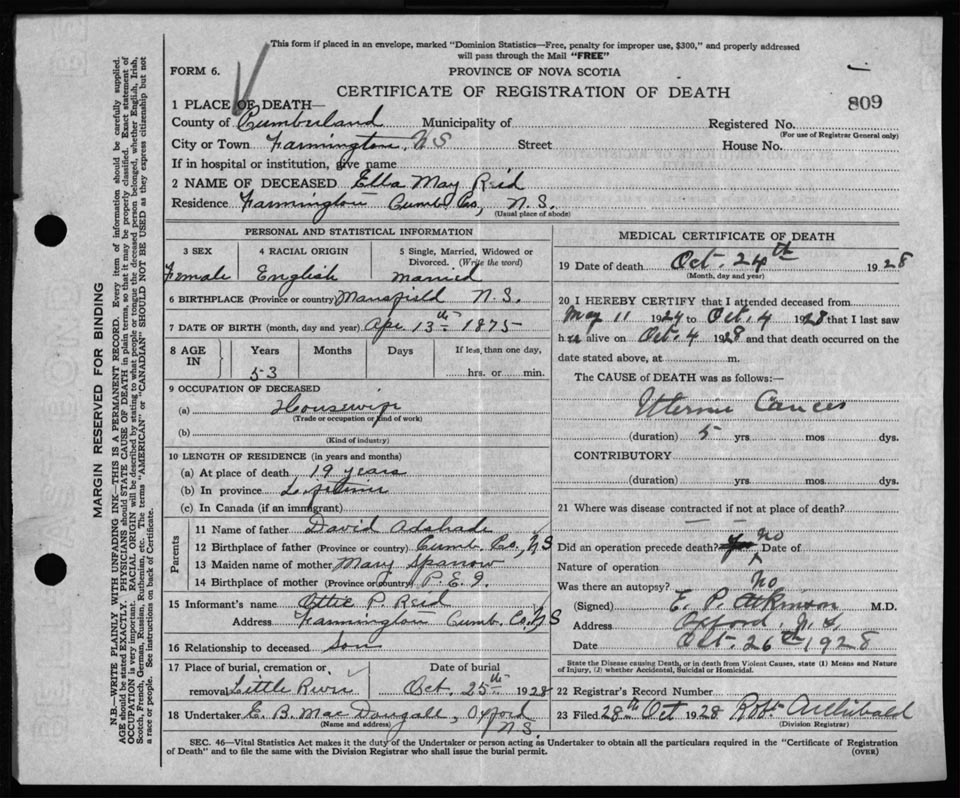 This form if placed in an envelope, marked "Dominion Statistics—Free, penalty for improper use, $300," and properly addressed
will pass through the Mail "FREE"
FORM 6.
PROVINCE OF NOVA SCOTIA
CERTIFICATE OF REGISTRATION OF DEATH
809
1 PLACE OF DEATH—
County of Cumberland Municipality of Registered No.
(For use of Registrar General only)
City or Town Farmington, N S Street House No.
If in hospital or institution, give name
2 NAME OF DECEASED Ella May Reid
Residence Farmington Cumb. Co, N. S.
(Usual place of abode)
PERSONAL AND STATISTICAL INFORMATION
3 SEX 4 RACIAL ORIGIN 5 Single, Married, Widowed or
Divorced. (Write the word)
Female English Married
6 BIRTHPLACE (Province or country) Mansfield N. S.
7 DATE OF BIRTH (month, day and year) Apr 13th 1875
8 AGE IN Years Months Days If less than one day,
53 hrs. or min.
9 OCCUPATION OF DECEASED
(a) Housewife
(Trade or occupation or kind of work)
(b)
(Kind of industry)
10 LENGTH OF RESIDENCE (in years and months)
(a) At place of death 19 years
(b) In province Lifetime
(c) In Canada (if an immigrant)
Parents
11 Name of father David Adshade
12 Birthplace of father (Province or country) Cumb. Co, N S
13 Maiden name of mother Mary Sparrow
14 Birthplace of mother (Province or country) P. E. I.
15 Informant's name Ottie P. Reid
Address Farmington Cumb. Co. N S
16 Relationship to deceased Son
17 Place of burial, cremation or Date of burial
removal Little River Oct. 25th 1928
18 Undertaker E. B. MacDougall, Oxford
(Name and address) N S.
MEDICAL CERTIFICATE OF DEATH
19 Date of death Oct. 24th 1928
(Month, day and year)
20 I HEREBY CERTIFY that I attended deceased from
May 11 1924 to Oct. 4 1928 that I last saw
her alive on Oct. 4 1928 and that death occurred on the
date stated above, at m.
The CAUSE OF DEATH was as follows:—
Uterine Cancer
(duration) 5 yrs. mos dys.
CONTRIBUTORY
(duration) yrs. mos dys.
21 Where was disease contracted if not at place of death?
Did an operation precede death? No Date of
Nature of operation
Was there an autopsy? No
(Signed) E. P. Atkinson M.D.
Address Oxford, N. S.
Date Oct. 26th 1928
State the Disease causing Death, or in death from Violent Causes, state (1) Means and Nature
of Injury, (2) whether Accidental, Suicidal or Homicidal.
22 Registrar's Record Number
23 Filed 28th Oct 1928 Robt Archibald
(Division Registrar)
SEC. 46—Vital Statistics Act makes it the duty of the Undertaker or person acting as Undertaker to obtain all the particulars required in the "Certificate of Registration
of Death" and to file the same with the Division Registrar who shall issue the burial permit.
(OVER)
MARGIN RESERVED FOR BINDING
N.B.—WRITE PLAINLY WITH UNFADING INK—THIS IS A PERMANENT RECORD. Every item of information should be carefully supplied.
AGE should be stated EXACTLY. PHYSICIANS should STATE CAUSE OF DEATH in plain terms, so that it may be properly classified. Exact statement of
OCCUPATION is very important. RACIAL ORIGIN will be described by stating to what people or tongue the deceased person belonged, whether English, Irish,
Scotch, French, German, Russian, Ruthenian, etc. The terms "AMERICAN" or "CANADIAN" SHOULD NOT BE USED as they express citizenship but not
a race or people. See instructions on back of Certificate.